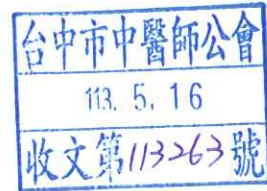 台中市中醫師公會
113. 5. 16
收文第113263號